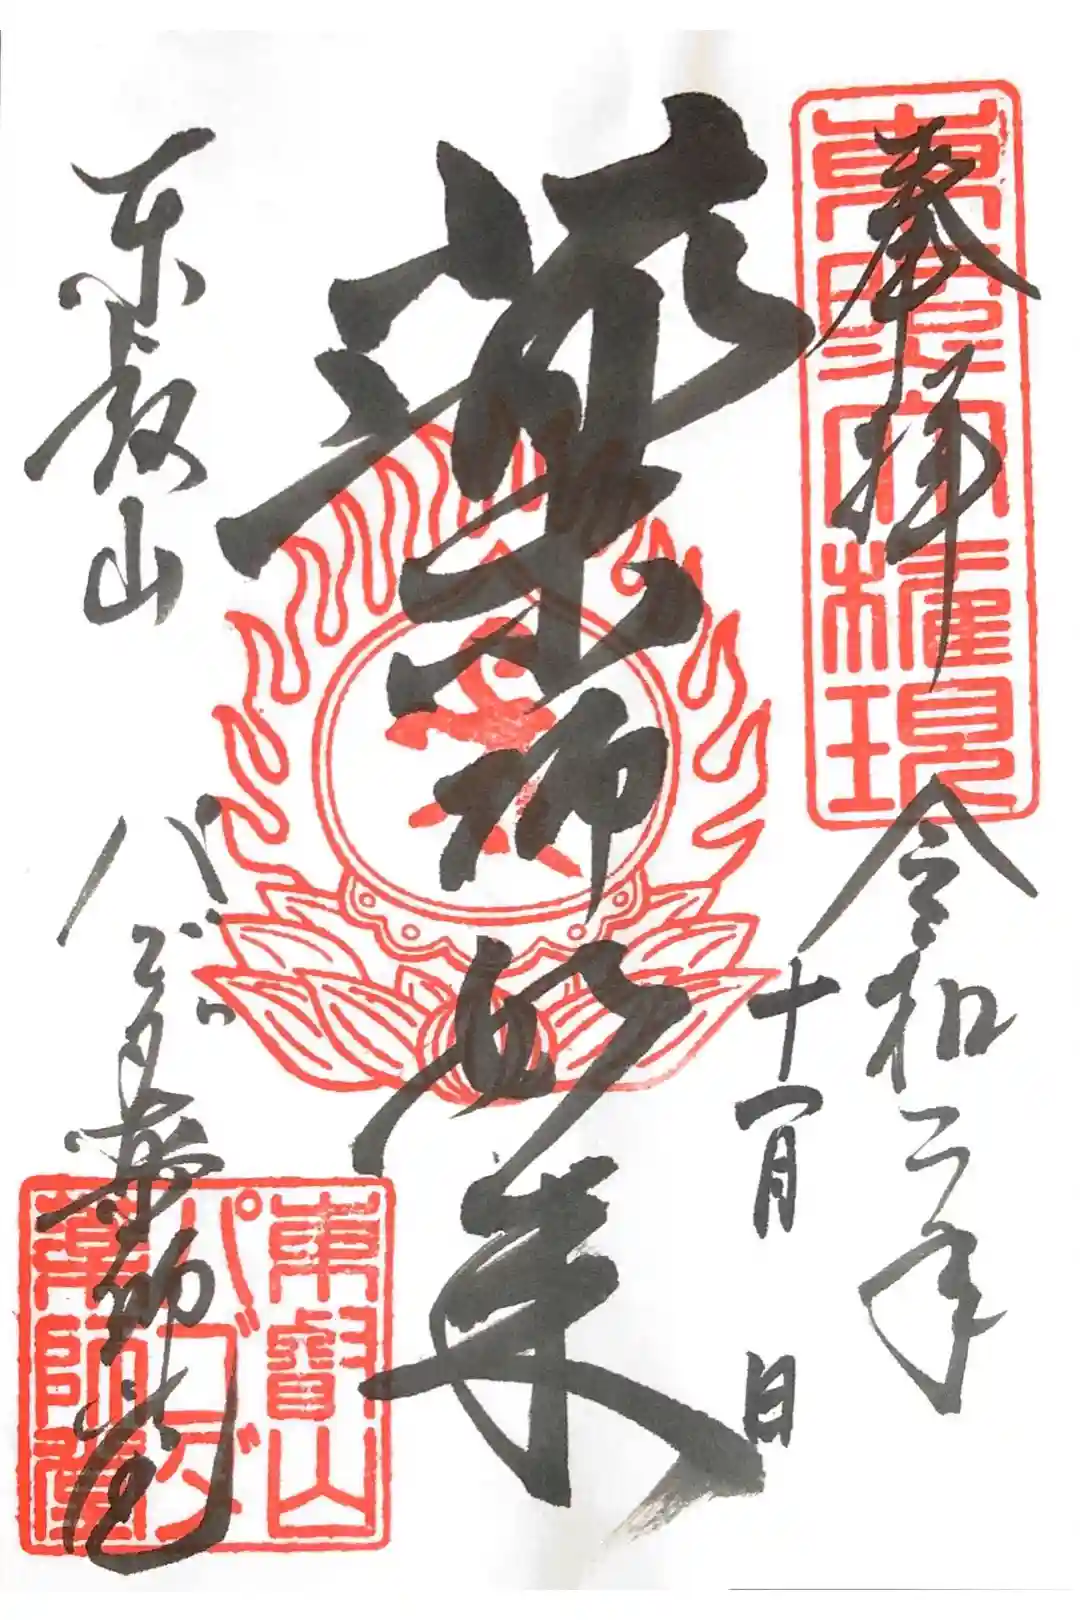 奉拝
東照大權現
令和二年
十一月 日
薬師如来
東叡山
パゴダ薬師堂
東叡山
パゴダ
薬師堂